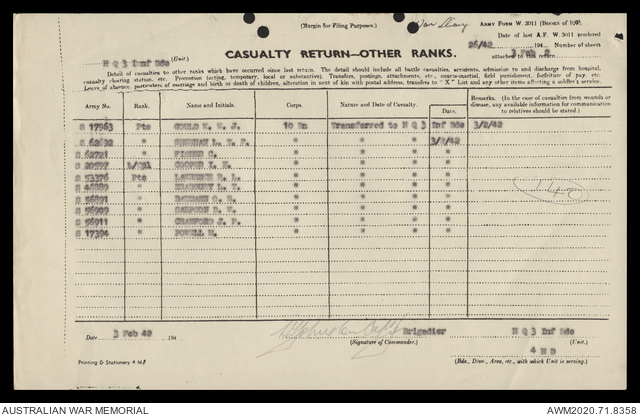 (Margin for Filing Purposes.)
War Diary
ARMY FORM W. 3011 (BOOKS OF 100).
Date of last A.F. W. 3011 rendered
26/42 194 Number of sheets
3 Feb 2
attached to this return
H Q 3 Inf Bde (Unit.)
CASUALTY RETURN—OTHER RANKS.
Detail of casualties to other ranks which have occurred since last return. The detail should include all battle casualties, admission to and discharge from hospital,
casualty clearing station, etc. Promotion (acting, temporary, local or substantive). Transfers, postings, attachments, etc., courts-martial, field punishment, forfeiture of pay, etc.
Leave of absence, particulars of marriage and birth or death of children, alteration in next of kin with postal address, transfers to "X" List and any other items affecting a soldier's service.
Army No. Rank. Name and Initials. Corps. Nature and Date of Casualty. Date. Remarks. (In the case of casualties from wounds or disease, any available information for communication to relatives should be stated.)
S 17963 Pte GOULD 10 Bn Transferred to H Q 3 Inf Bde 3/2/42
S 62692 " " " " " 3/2/42
S 62721 " FISHER C. " " " " "
S 20597 COOPER " " " " "
S 53376 Pte LAWRENCE R. L. " " " " "
" " " " " "
S 56891 " " " " " "
S 56909 " " " " " "
S 56911 " CRAWFORD J. P. " " " " "
S 17394 " POWELL M. " " " " "
Date 3 Feb 42 194
Brigadier
(Signature of Commander.)
H Q 3 Inf Bde (Unit.)
4 M D
(Bde., Divn., Area, etc., with which Unit is serving.)
Printing & Stationery 4 MD
AUSTRALIAN WAR MEMORIAL
AWM2020.71.8358